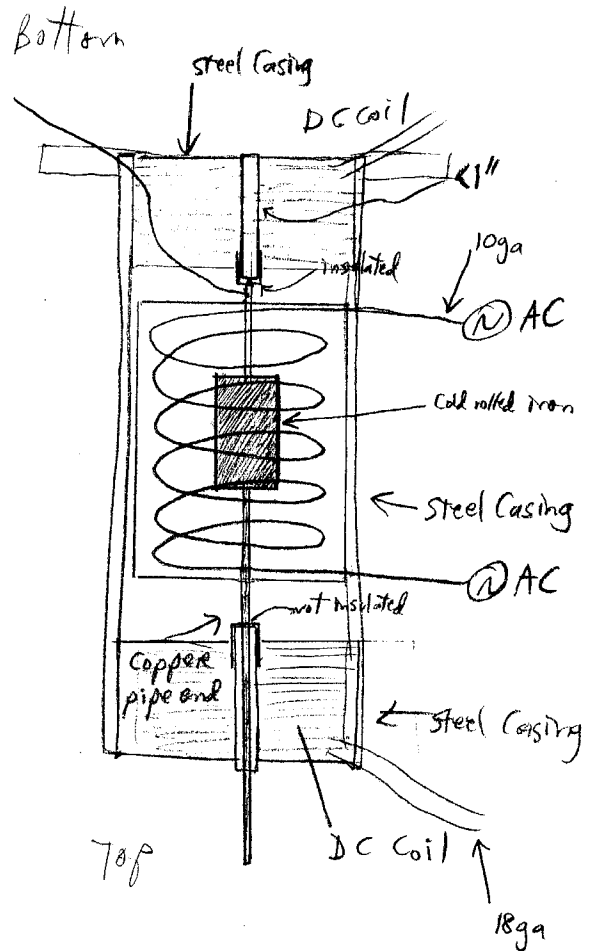 Bottom
steel Casing
DC Coil
<1"
insulated
10ga
AC
cold rolled iron
Steel Casing
AC
not insulated
Copper
pipe end
Steel Casing
Top
DC Coil
18ga